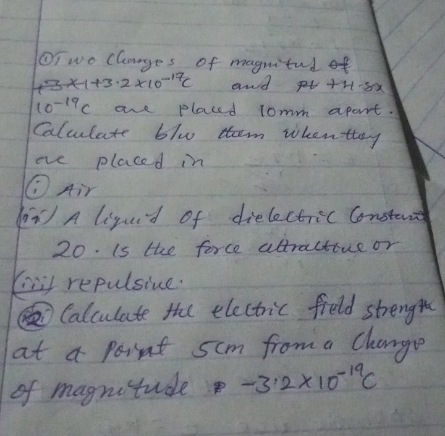 ① Two Charges of magnitud of
+3.2×10⁻¹⁹C and
10⁻¹⁹C are placed 10mm apart.
Calculate b/w them when they
are placed in
① Air
(ii) A liquid of dielectric Constant
20. Is the force attractive or
(iii) repulsive.
② Calculate the electric field strength
at a point 5cm from a Charge
of magnitude -3.2×10⁻¹⁹C